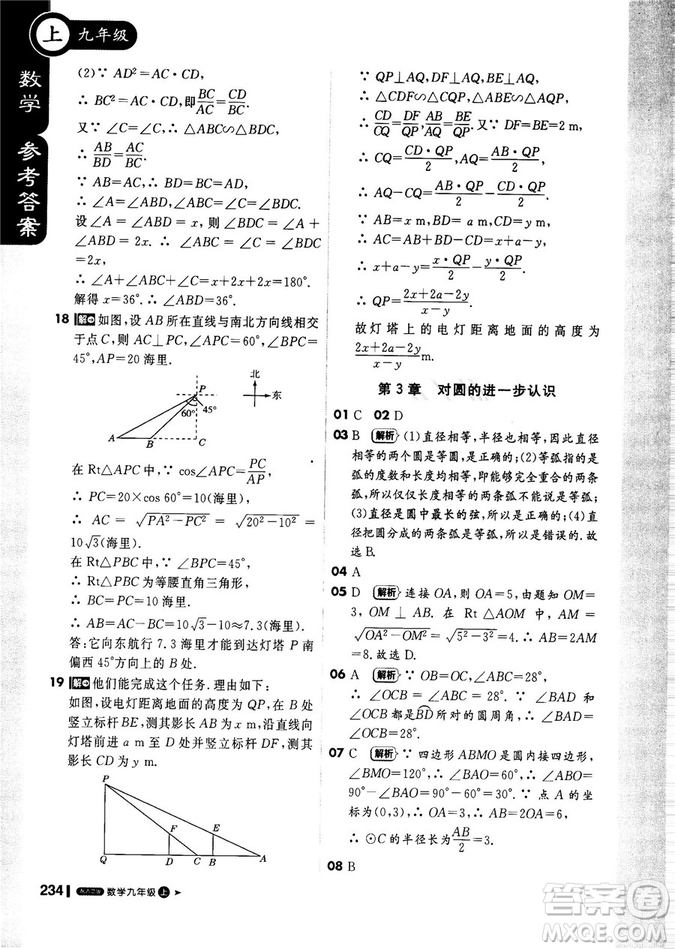 上 九年级
数学 参考答案
(2)∵ AD²=AC·CD,
∴ BC²=AC·CD,即BC/AC=CD/BC.
又∵ ∠C=∠C,∴ △ABC∽△BDC,
∴ AB/BD=AC/BC.
∵ AB=AC,∴ BD=BC=AD,
∴ ∠A=∠ABD,∠BDC=∠C.
设∠A=∠ABD=x,则∠BDC=∠A+
∠ABD=2x.∴ ∠ABC=∠C=∠BDC=
2x.
∴ ∠A+∠ABC+∠C=x+2x+2x=180°.
解得x=36°.∴ ∠A=36°.
18 解 如图,设AB所在直线与南北方向线相交
于点C,则AC⊥PC,∠APC=60°,∠BPC=
45°,AP=20海里.
北
东
P
60°
45°
A B C
在Rt△APC中,∵ cos∠APC=PC/AP,
∴ PC=20×cos 60°=10(海里).
∴ AC = √(PA²−PC²) = √(20²−10²) =
10√3(海里).
在△PBC中,∵ ∠BPC=45°,
∴ Rt△PBC为等腰直角三角形.
∴ BC=PC=10海里.
∴ AB=AC−BC=10√3−10≈7.3(海里).
答:它向东航行7.3海里才能到达灯塔P南
偏西45°方向上的B处.
19 解 他们能完成这个任务.理由如下:
如图,设电灯距离地面的高度为QP,在B处
竖立标杆BE,测其影长AB为x m,沿直线向
灯塔前进a m至D处并竖立标杆DF,测其影
长CD为y m.
P
F E
Q D C B A
∵ QP⊥AQ,DF⊥AQ,
∴ △CDF∽△CQP,△ABE∽△AQP,
∴ CD/CQ=DF/QP,AB/AQ=BE/QP.又∵ DF=BE=2,
∴ CQ=CD·QP/2,AQ=AB·QP/2,
∴ AC=AQ−CQ=AB·QP/2−CD·QP/2.
∵ AB=x m,CD=y m,BD=a m,
∴ AC=AB+BD−CD=x+a−y,
∴ x+a−y=x·QP/2−y·QP/2,
∴ QP=(2x+2a−2y)/(x−y).
故灯塔上的电灯距离地面的高度为
(2x+2a−2y)/(x−y) m.
第3章 对圆的进一步认识
01 C 02 D
03 B 解析 (1)直径相等,半径也相等,所以直径
相等的两个圆是等圆,是正确的;(2)等弧指的是弧
的度数和长度均相等,所以长度相等的两条弧不一
定是等弧,所以长度相等的两条弧不能说是等弧;
(3)直径是圆中最长的弦,所以是正确的;(4)一条
直径把圆分成的两条弧是等弧,所以是错误的.故
选B.
04 A
05 D 解析 连接OA,则OA=5,由题知OM=
3,OM⊥AB,则在Rt△AOM中,AM=
√(OA²−OM²)=√(5²−3²)=4,∴ AB=2AM
=8.故选D.
06 A 解析 ∵ OB=OC,∠OBC=28°,
∴ ∠OCB=∠OBC=28°.∵ ∠BAD和
∠OCB都是BD所对的圆周角,
∴ ∠BAD=∠OCB=28°.
07 C 解析 ∵ 四边形ABMO是圆内接四边形,
∠BMO=120°,∴ ∠BAO=60°.∵ AB是⊙C的直径,
∴ ∠AOB=90°,∴ ∠ABO=90°−∠BAO
=90°−60°=30°.∵ 点A的坐
标为(0,3),∴ OA=3,∴ AB=2OA=6,
∴ ⊙C的半径长为AB/2=3.
08 B
234 数学九年级 上